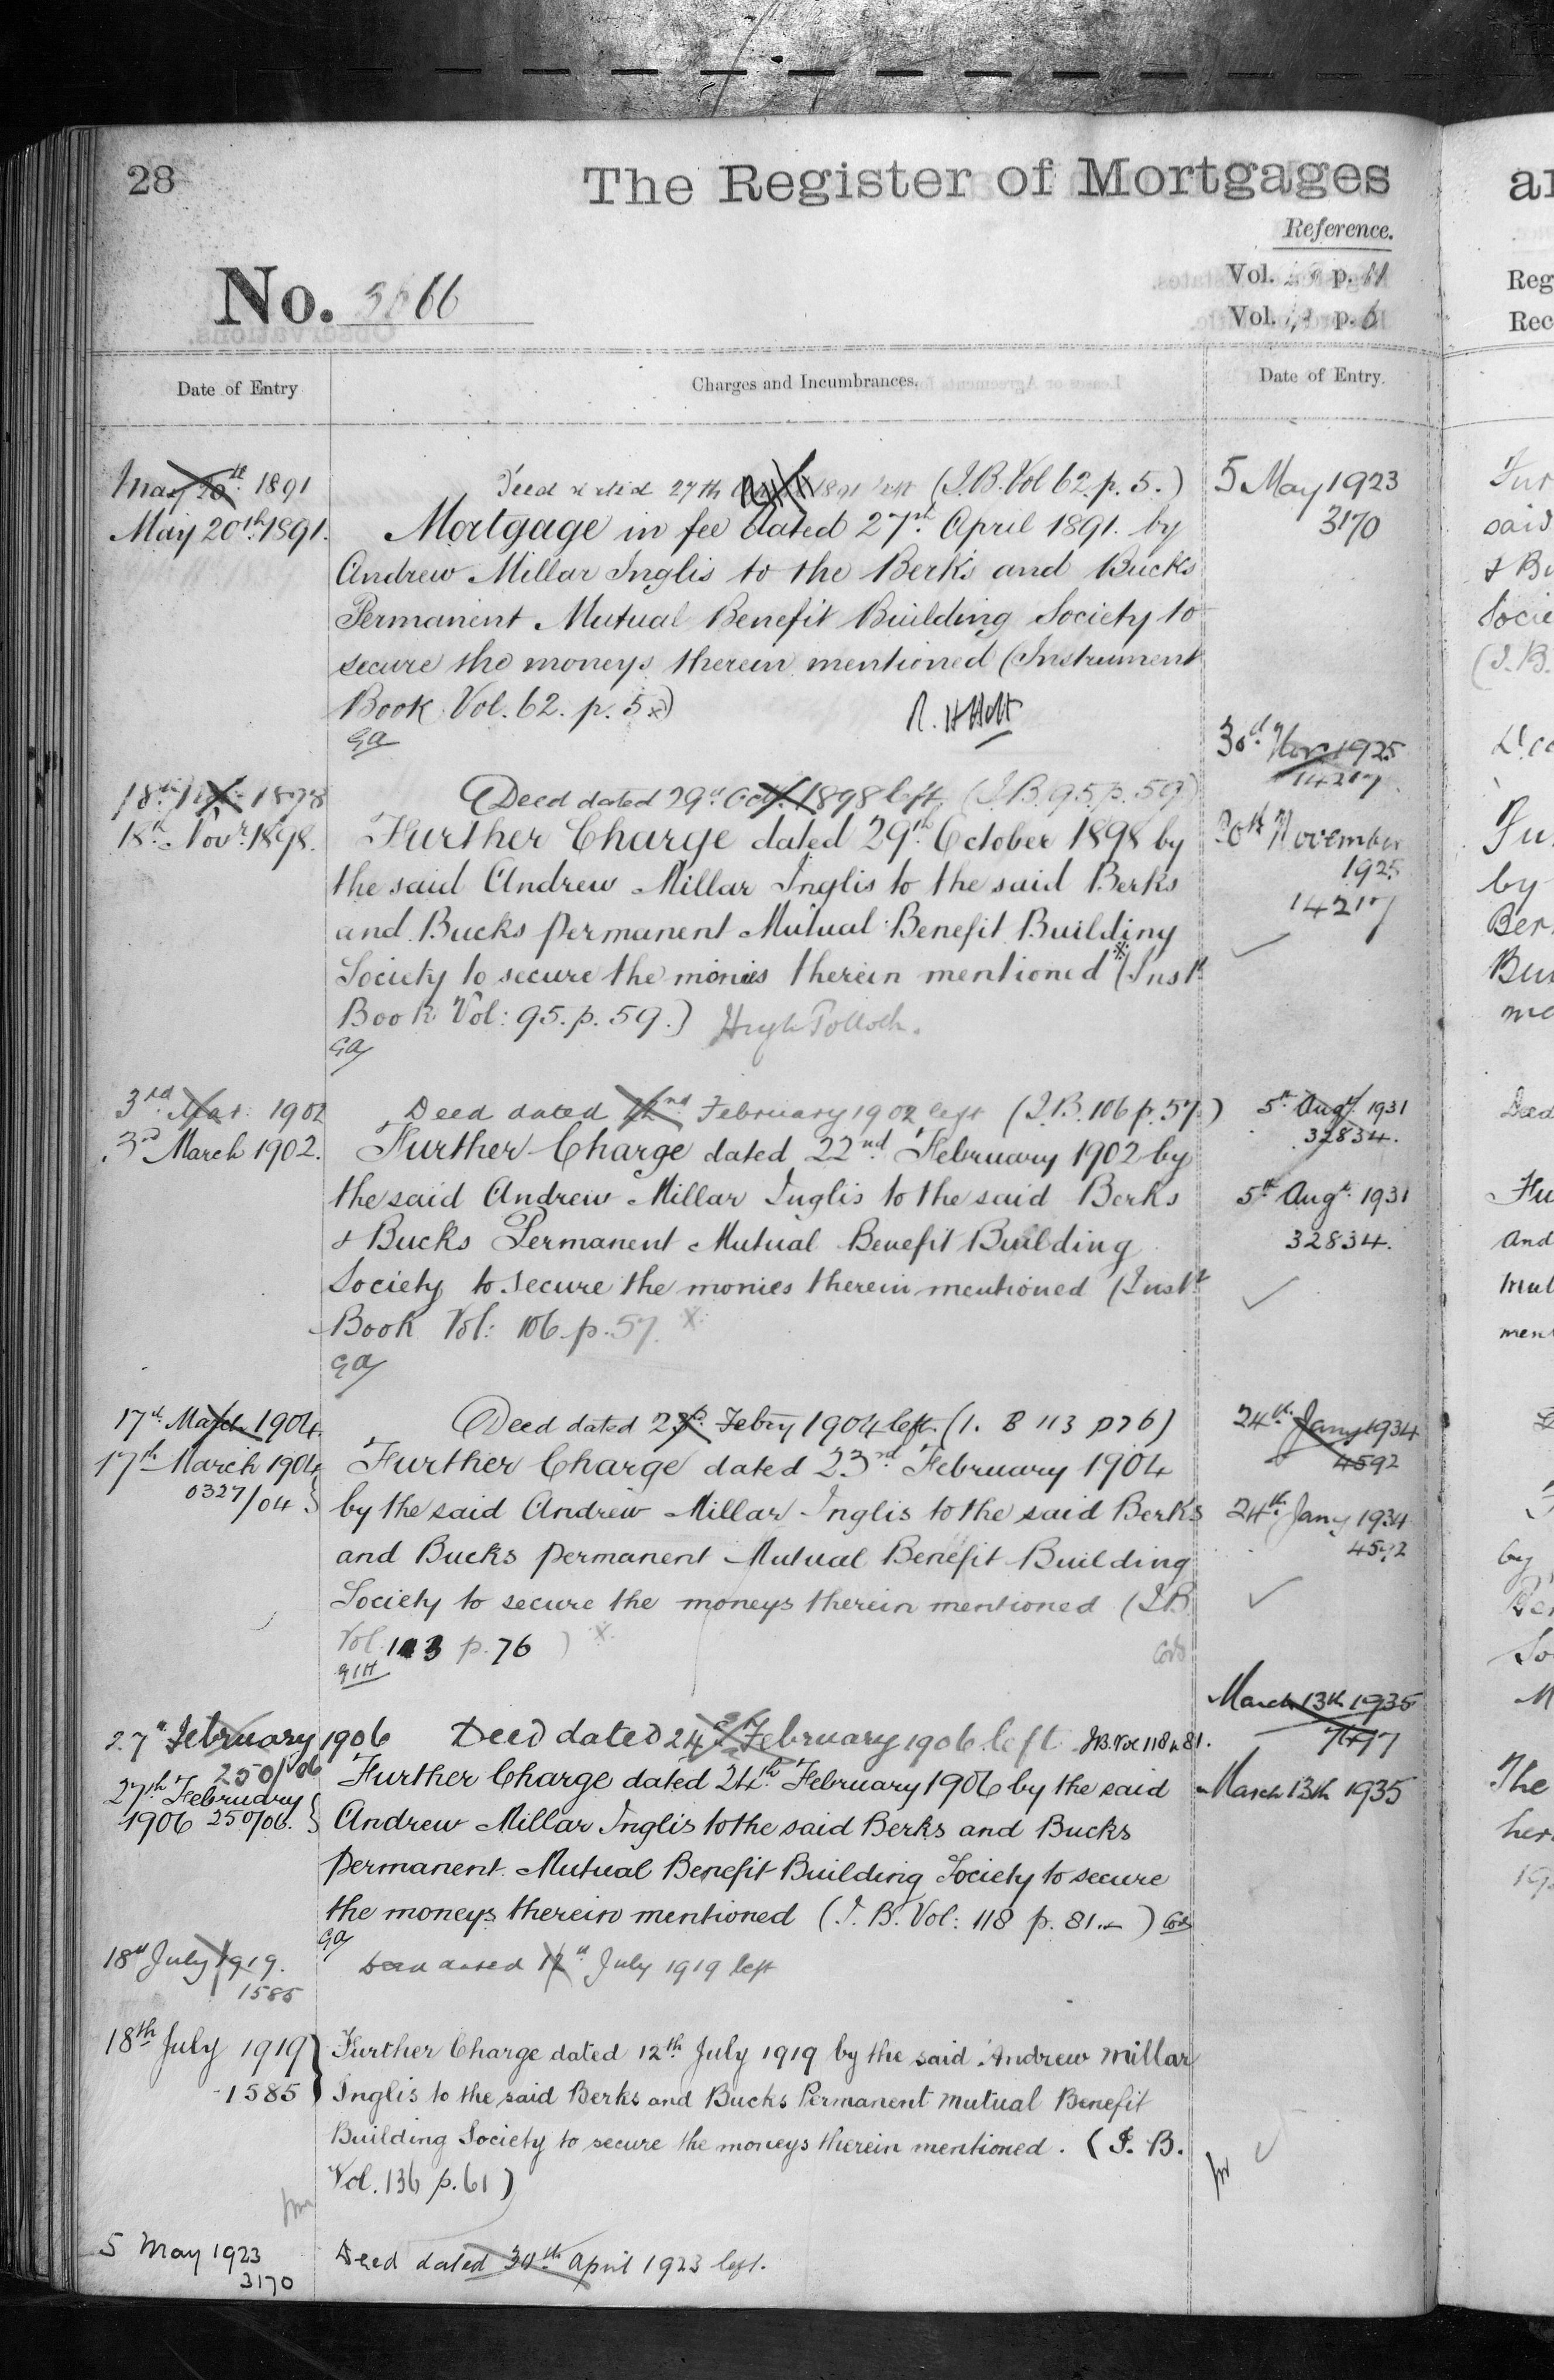 28
The Register of Mortgages
Reference.
Vol. p. 11
Vol. p. 6
No. 3666
Date of Entry
Charges and Incumbrances.
Date of Entry.
May 20th 1891
Deed dated 27th April 1891 left (I.B. Vol 62. p. 5.)
May 20th 1891.
Mortgage in fee dated 27th April 1891. by
Andrew Millar Inglis to the Berks and Bucks
Permanent Mutual Benefit Building Society to
secure the moneys therein mentioned (Instrument
Book Vol. 62. p. 5 x)
GA
18th Nov 1898
Deed dated 29th Oct. 1898 left (I.B. 95. p. 59)
18th Novr. 1898.
Further Charge dated 29th October 1898 by
the said Andrew Millar Inglis to the said Berks
and Bucks permanent Mutual Benefit Building
Society to secure the monies therein mentioned * (Inst.
Book Vol: 95. p. 59.) Hugh Pollock.
GA
3rd Mar. 1902
Deed dated 22nd February 1902 left (I.B. 106 p. 57.)
3rd March 1902.
Further Charge dated 22nd February 1902 by
the said Andrew Millar Inglis to the said Berks
& Bucks Permanent Mutual Benefit Building
Society to secure the monies therein mentioned (Inst.
Book Vol: 106. p. 57. x
GA
17th March 1904
Deed dated 23rd Febry 1904 left. (I. B 113 p 76)
17th March 1904
0327/04 }
Further Charge dated 23rd February 1904
by the said Andrew Millar Inglis to the said Berks
and Bucks permanent Mutual Benefit Building
Society to secure the moneys therein mentioned (I.B.
Vol. 113 p. 76 ) x
GIH
27th February 1906
250/06
Deed dated 24th February 1906 left I.B. Vol 118 p. 81.
27th February
1906 250/06. }
Further Charge dated 24th February 1906 by the said
Andrew Millar Inglis to the said Berks and Bucks
permanent Mutual Benefit Building Society to secure
the moneys therein mentioned (I. B. Vol: 118 p. 81. x )
GA
18th July 1919.
1585
Deed dated 12th July 1919 left
18th July 1919 }
1585
Further Charge dated 12th July 1919 by the said Andrew Millar
Inglis to the said Berks and Bucks Permanent Mutual Benefit
Building Society to secure the moneys therein mentioned. (I. B.
Vol. 136 p. 61)
5 May 1923
3170
Deed dated 30th April 1923 left.
5 May 1923
3170
30th Nov 1925
14217
30th November
1925
14217
5th Augt. 1931
32834.
5th Augt. 1931
32834.
24th Jany 1934
4592
24th Jany 1934
4592
March 13th 1935
March 13th 1935
Reg
Rec
said
& Bu
Socie
(I.B.
Fu
by
Ber
Deed
Fu
And
Mut
men
by
The
her